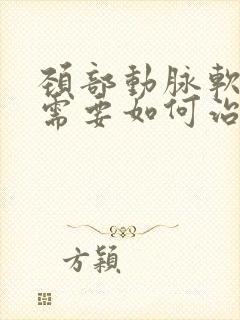 頚部動脉軟
需要如何治
方穎